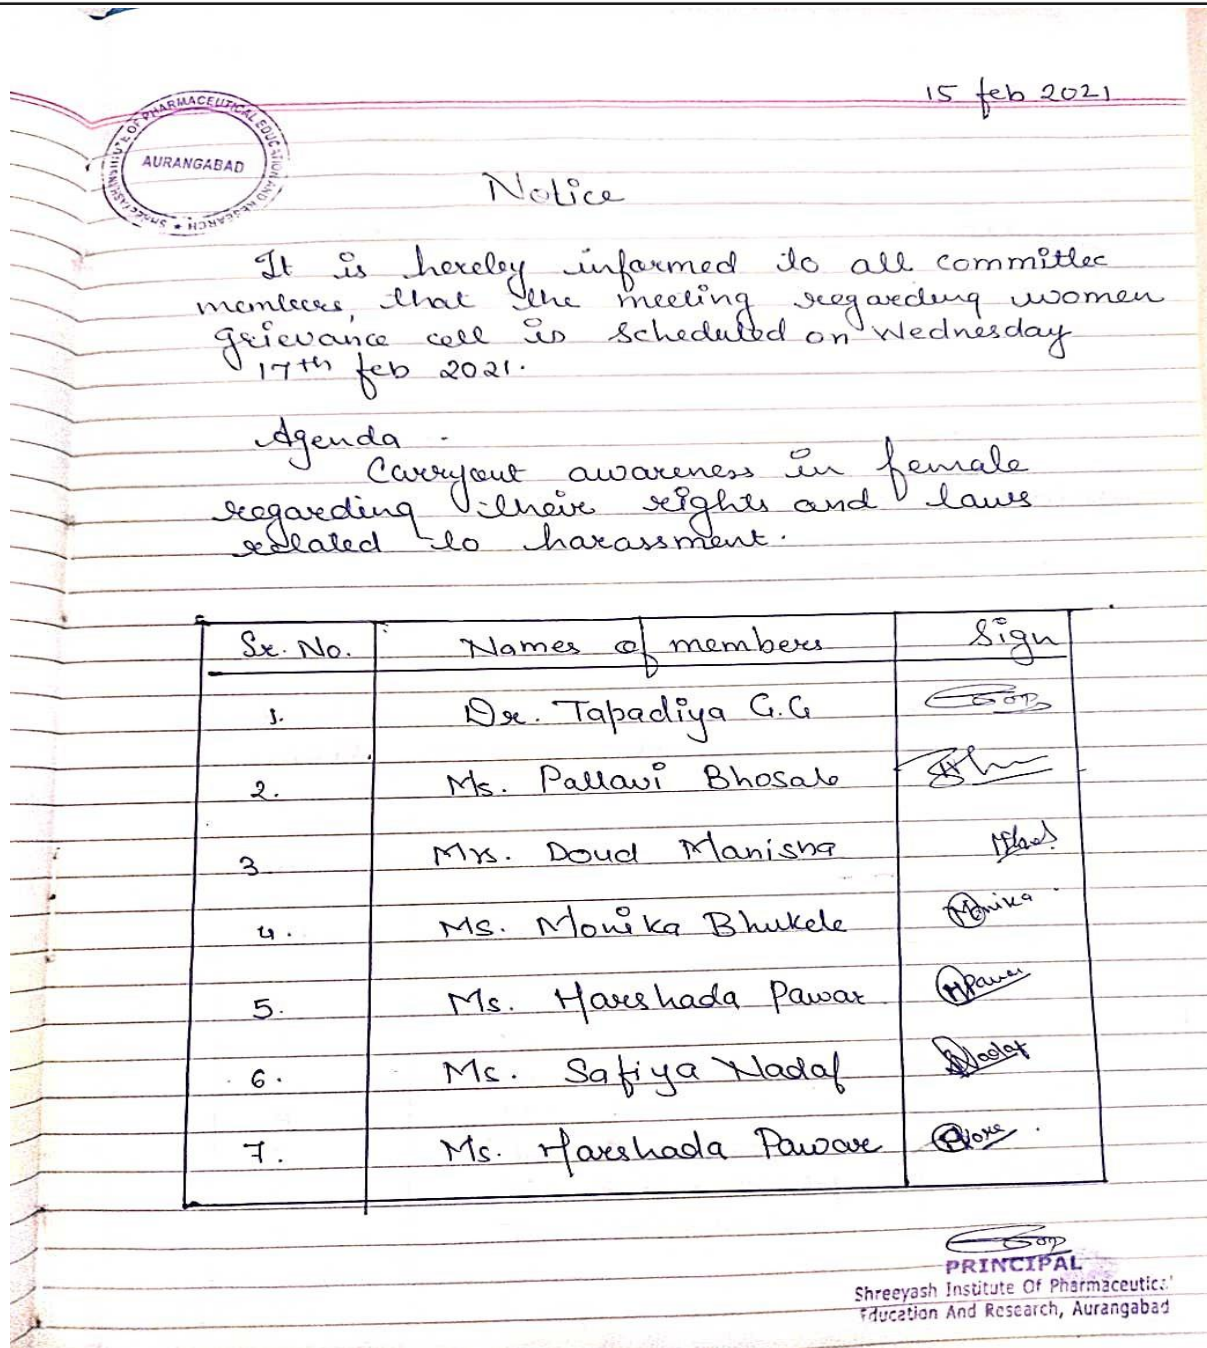 15 feb 2021
SHREEYASH INSTITUTE OF PHARMACEUTICAL EDUCATION AND RESEARCH ★
AURANGABAD
Notice
It is hereby informed to all committee
members, that the meeting regarding women
grievance cell is scheduled on Wednesday
17th feb 2021.
Agenda -
Carryout awareness in female
regarding their rights and laws
related to harassment.
Sr. No. Names of members Sign
1. Dr. Tapadiya G.G
2. Ms. Pallavi Bhosale
3 Mrs. Doud Manisha
4. Ms. Monika Bhukele Monika
5. Ms. Harshada Pawar HPawar
6. Ms. Safiya Nadaf Nadaf
7. Ms. Harshada Pawar
PRINCIPAL
Shreeyash Institute Of Pharmaceutical
Education And Research, Aurangabad